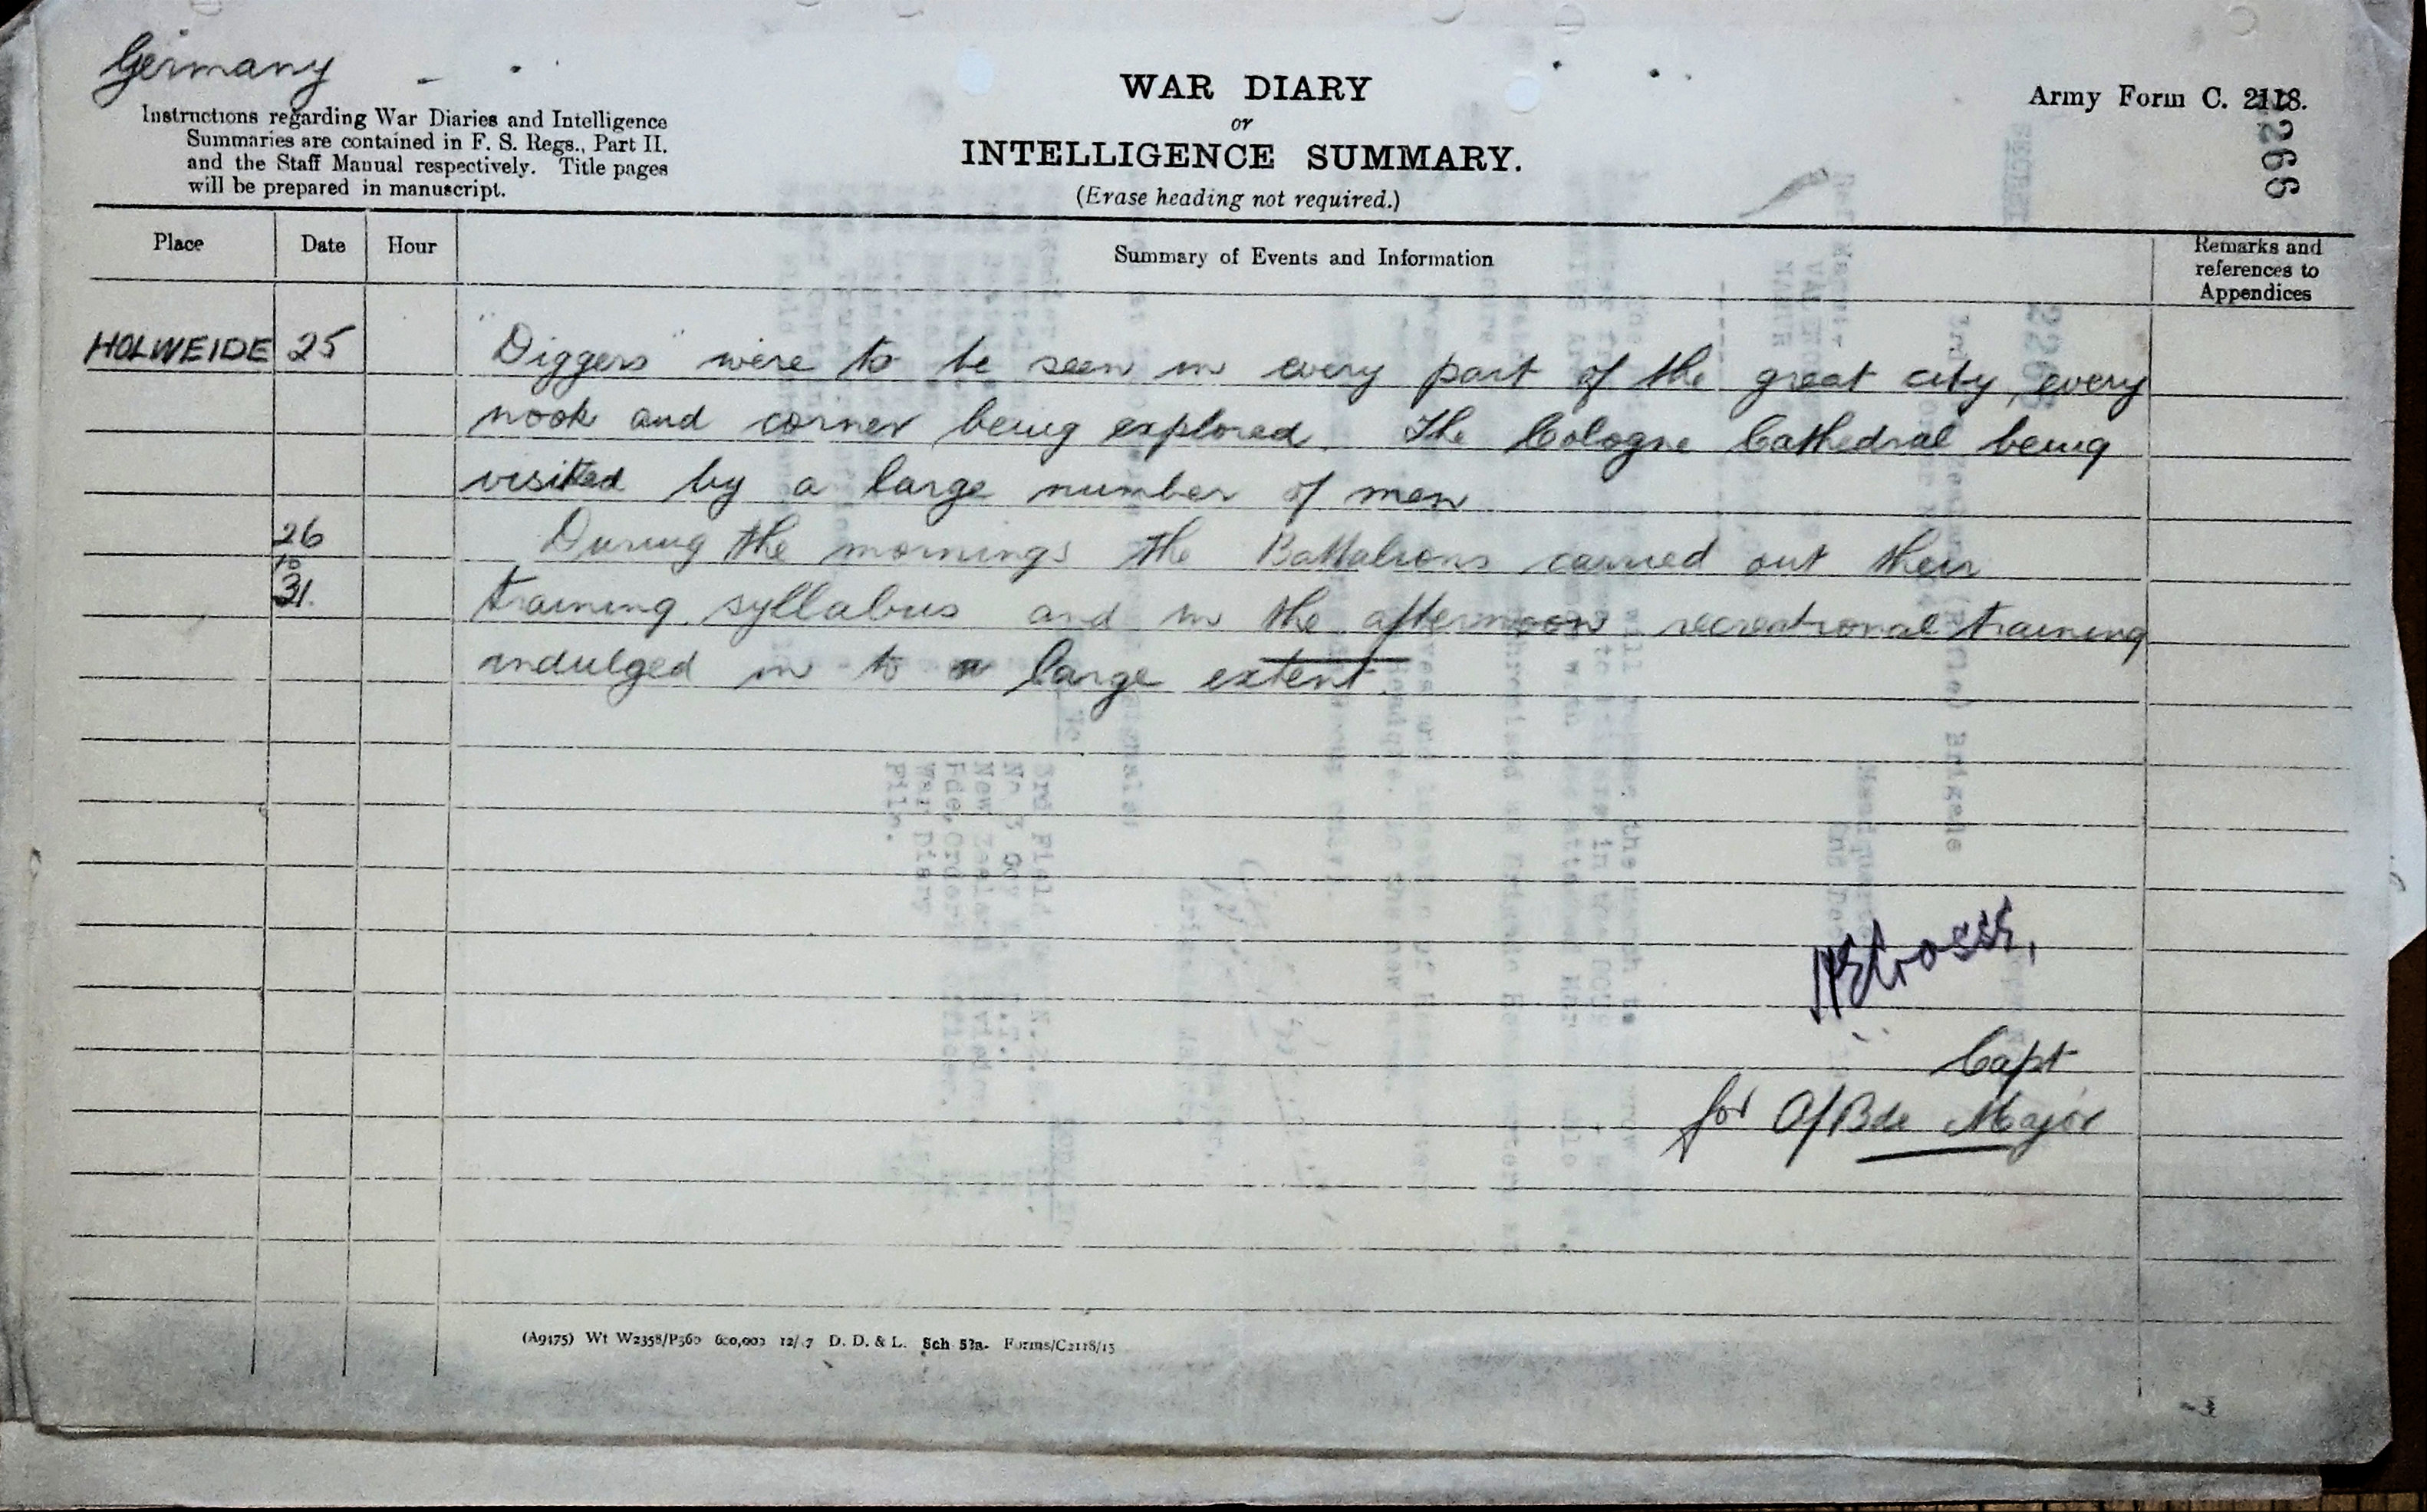 Germany
Instructions regarding War Diaries and Intelligence
Summaries are contained in F. S. Regs., Part II.
and the Staff Manual respectively. Title pages
will be prepared in manuscript.
WAR DIARY
or
INTELLIGENCE SUMMARY.
(Erase heading not required.)
Army Form C. 2118.
Place Date Hour Summary of Events and Information Remarks and
references to
Appendices
HOLWEIDE 25 "Diggers" were to be seen in every part of the great city, every
nook and corner being explored. The Cologne Cathedral being
visited by a large number of men
26 During the mornings the Battalions carried out their
to
31. training syllabus and in the afternoon recreational training
indulged in to a large extent.
Capt
for A/Bde Major
(A9475) Wt W2358/P560 600,000 12/17 D. D. & L. Sch 52a. Forms/C2118/15